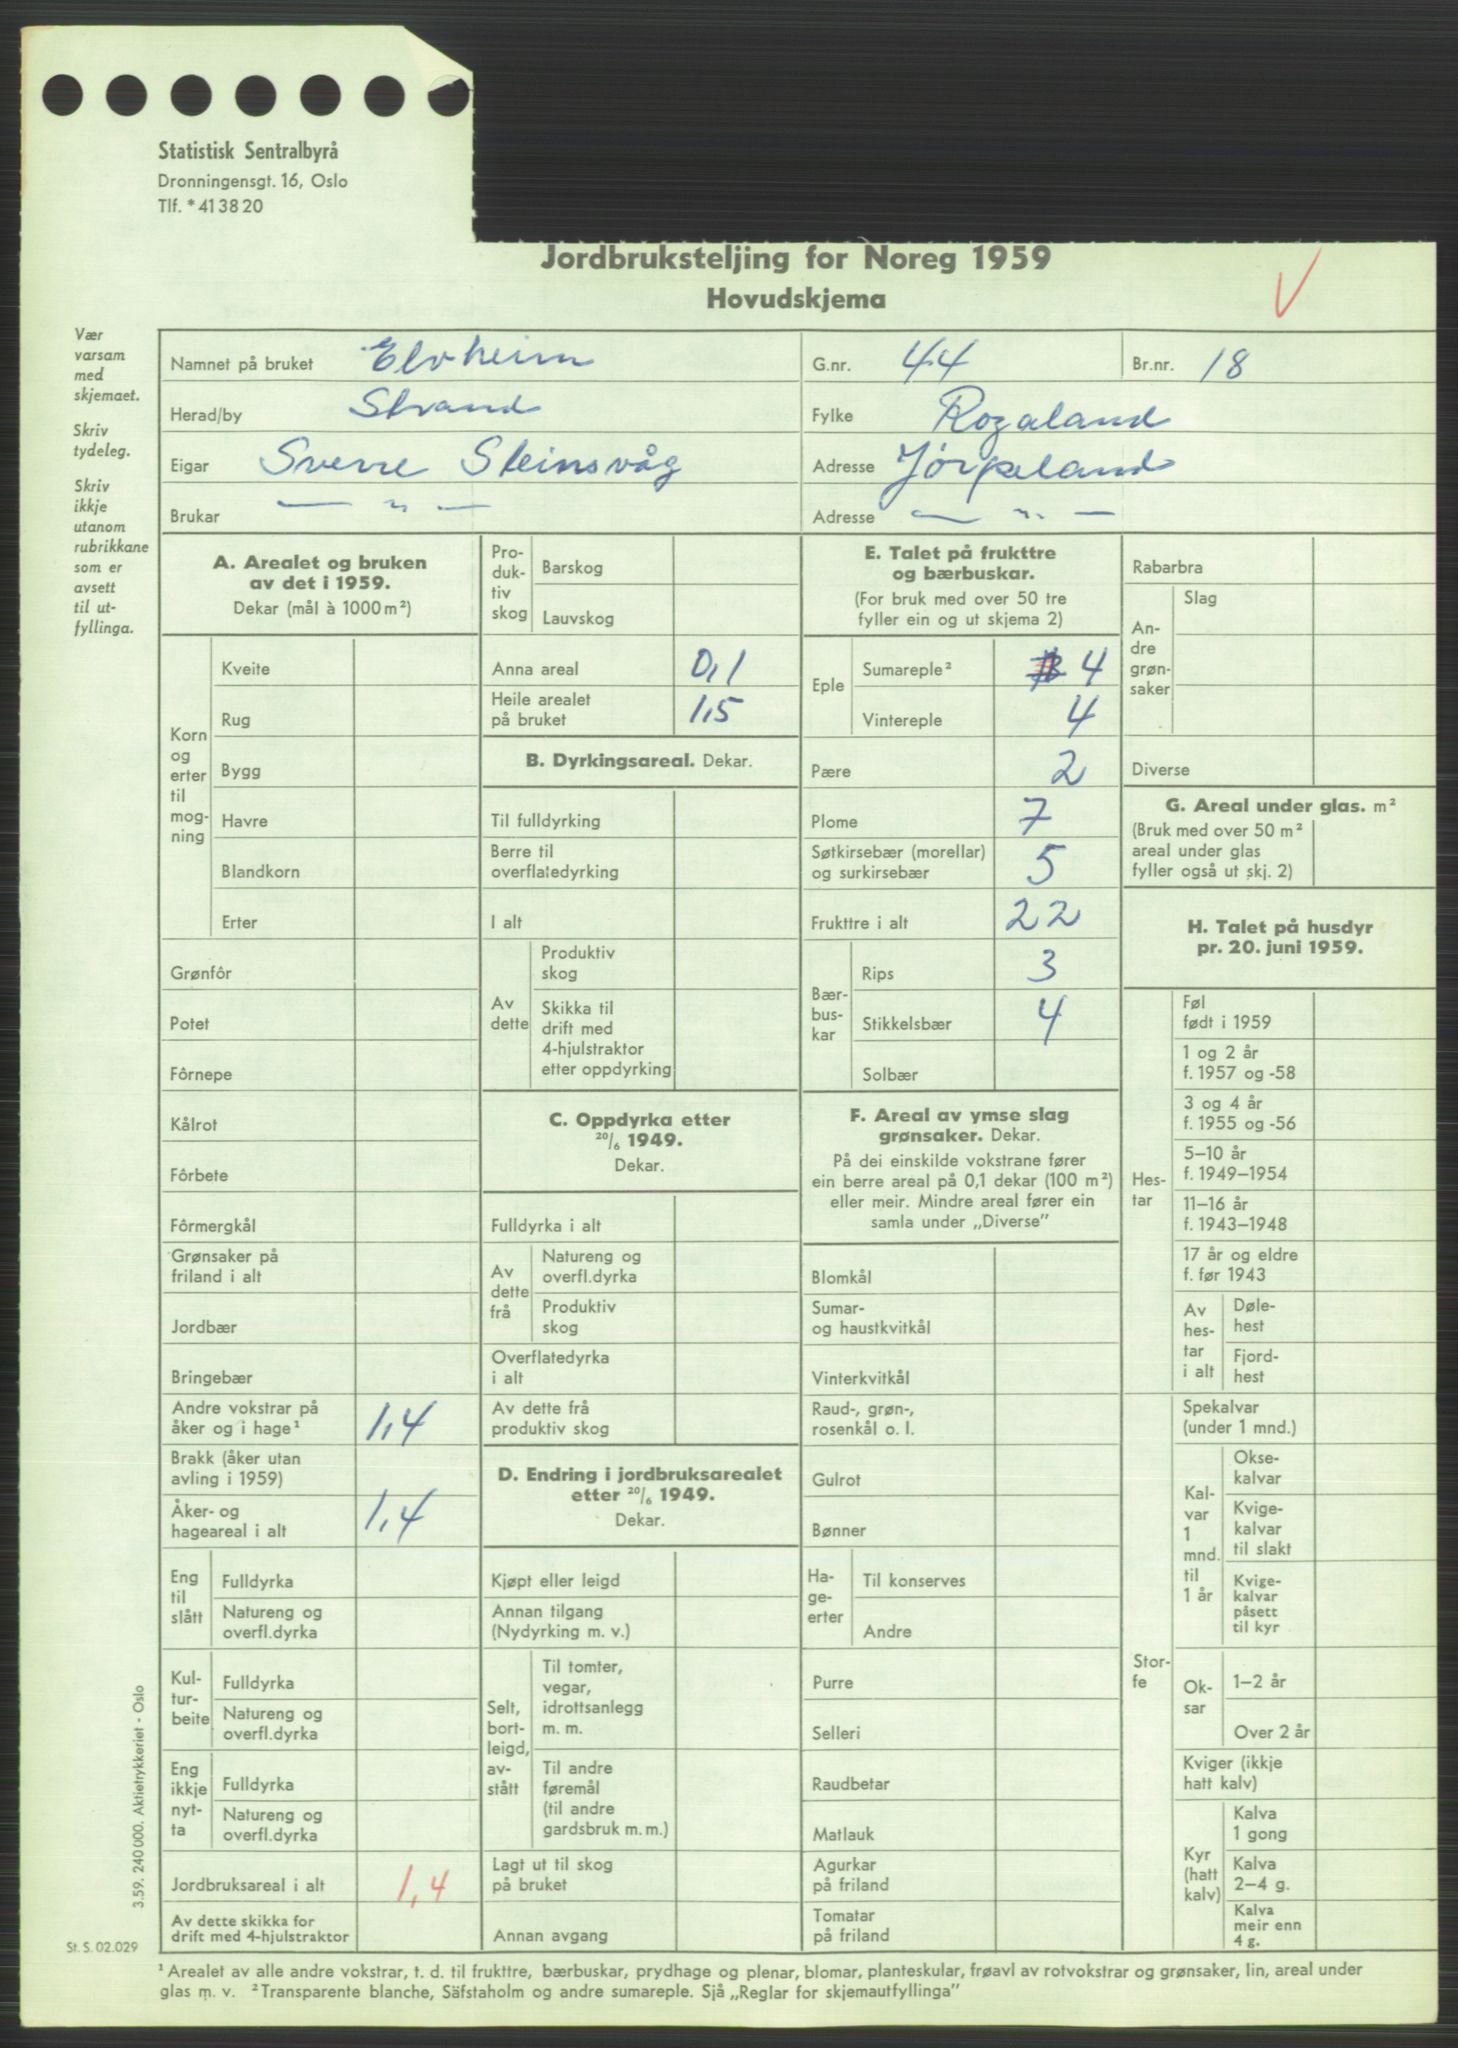 Statistisk Sentralbyrå
Dronningensgt. 16, Oslo
Tlf. * 41 38 20
Jordbruksteljing for Noreg 1959
Hovudskjema
Vær
varsam
med
skjemaet.
Skriv
tydeleg.
Skriv
ikkje
utanom
rubrikkane
som er
avsett
til ut-
fyllinga.
Namnet på bruket Elvheim G.nr. 44 Br.nr. 18
Herad/by Strand Fylke Rogaland
Eigar Sverre Steinsvåg Adresse Jørpeland
Brukar — " — Adresse — " —
A. Arealet og bruken
av det i 1959.
Dekar (mål à 1000 m²)
Korn
og
erter
til
mog-
ning
Kveite
Rug
Bygg
Havre
Blandkorn
Erter
Grønfôr
Potet
Fôrnepe
Kålrot
Fôrbete
Fôrmergkål
Grønsaker på
friland i alt
Jordbær
Bringebær
Andre vokstrar på
åker og i hage¹ 1,4
Brakk (åker utan
avling i 1959)
Åker- og
hageareal i alt 1,4
Eng
til
slått
Fulldyrka
Natureng og
overfl.dyrka
Kul-
tur-
beite
Fulldyrka
Natureng og
overfl.dyrka
Eng
ikkje
nyt-
ta
Fulldyrka
Natureng og
overfl.dyrka
Jordbruksareal i alt 1,4
Av dette skikka for
drift med 4-hjulstraktor
Pro-
duk-
tiv
skog
Barskog
Lauvskog
Anna areal 0,1
Heile arealet
på bruket 1,5
B. Dyrkingsareal. Dekar.
Til fulldyrking
Berre til
overflatedyrking
I alt
Av
dette
Produktiv
skog
Skikka til
drift med
4-hjulstraktor
etter oppdyrking
C. Oppdyrka etter
20/6 1949.
Dekar.
Fulldyrka i alt
Av
dette
frå
Natureng og
overfl.dyrka
Produktiv
skog
Overflatedyrka
i alt
Av dette frå
produktiv skog
D. Endring i jordbruksarealet
etter 20/6 1949.
Dekar.
Kjøpt eller leigd
Annan tilgang
(Nydyrking m. v.)
Selt,
bort-
leigd,
av-
stått
Til tomter,
vegar,
idrottsanlegg
m. m.
Til andre
føremål
(til andre
gardsbruk m. m.)
Lagt ut til skog
på bruket
Annan avgang
E. Talet på frukttre
og bærbuskar.
(For bruk med over 50 tre
fyller ein og ut skjema 2)
Eple
Sumareple² 4
Vintereple 4
Pære 2
Plome 7
Søtkirsebær (morellar)
og surkirsebær 5
Frukttre i alt 22
Bær-
bus-
kar
Rips 3
Stikkelsbær 4
Solbær
F. Areal av ymse slag
grønsaker. Dekar.
På dei einskilde vokstrane fører
ein berre areal på 0,1 dekar (100 m²)
eller meir. Mindre areal fører ein
samla under „Diverse”
Blomkål
Sumar-
og haustkvitkål
Vinterkvitkål
Raud-, grøn-,
rosenkål o. l.
Gulrot
Bønner
Ha-
ge-
erter
Til konserves
Andre
Purre
Selleri
Raudbetar
Matlauk
Agurkar
på friland
Tomatar
på friland
Rabarbra
An-
dre
grøn-
saker
Slag
Diverse
G. Areal under glas. m²
(Bruk med over 50 m²
areal under glas
fyller også ut skj. 2)
H. Talet på husdyr
pr. 20. juni 1959.
Hes-
tar
Føl
født i 1959
1 og 2 år
f. 1957 og -58
3 og 4 år
f. 1955 og -56
5–10 år
f. 1949–1954
11–16 år
f. 1943–1948
17 år og eldre
f. før 1943
Av
hes-
tar
i alt
Døle-
hest
Fjord-
hest
Stor-
fe
Spekalvar
(under 1 mnd.)
Kal-
var
1
mnd.
til
1 år
Okse-
kalvar
Kvige-
kalvar
til slakt
Kvige-
kalvar
påsett
til kyr
Ok-
sar
1–2 år
Over 2 år
Kviger (ikkje
hatt kalv)
Kyr
(hatt
kalv)
Kalva
1 gong
Kalva
2–4 g.
Kalva
meir enn
4 g.
3.59. 240 000. Aktietrykkeriet - Oslo
St. S. 02.029
¹ Arealet av alle andre vokstrar, t. d. til frukttre, bærbuskar, prydhage og plenar, blomar, planteskular, frøavl av rotvokstrar og grønsaker, lin, areal under
glas m. v. ² Transparente blanche, Säfstaholm og andre sumareple. Sjå „Reglar for skjemautfyllinga”